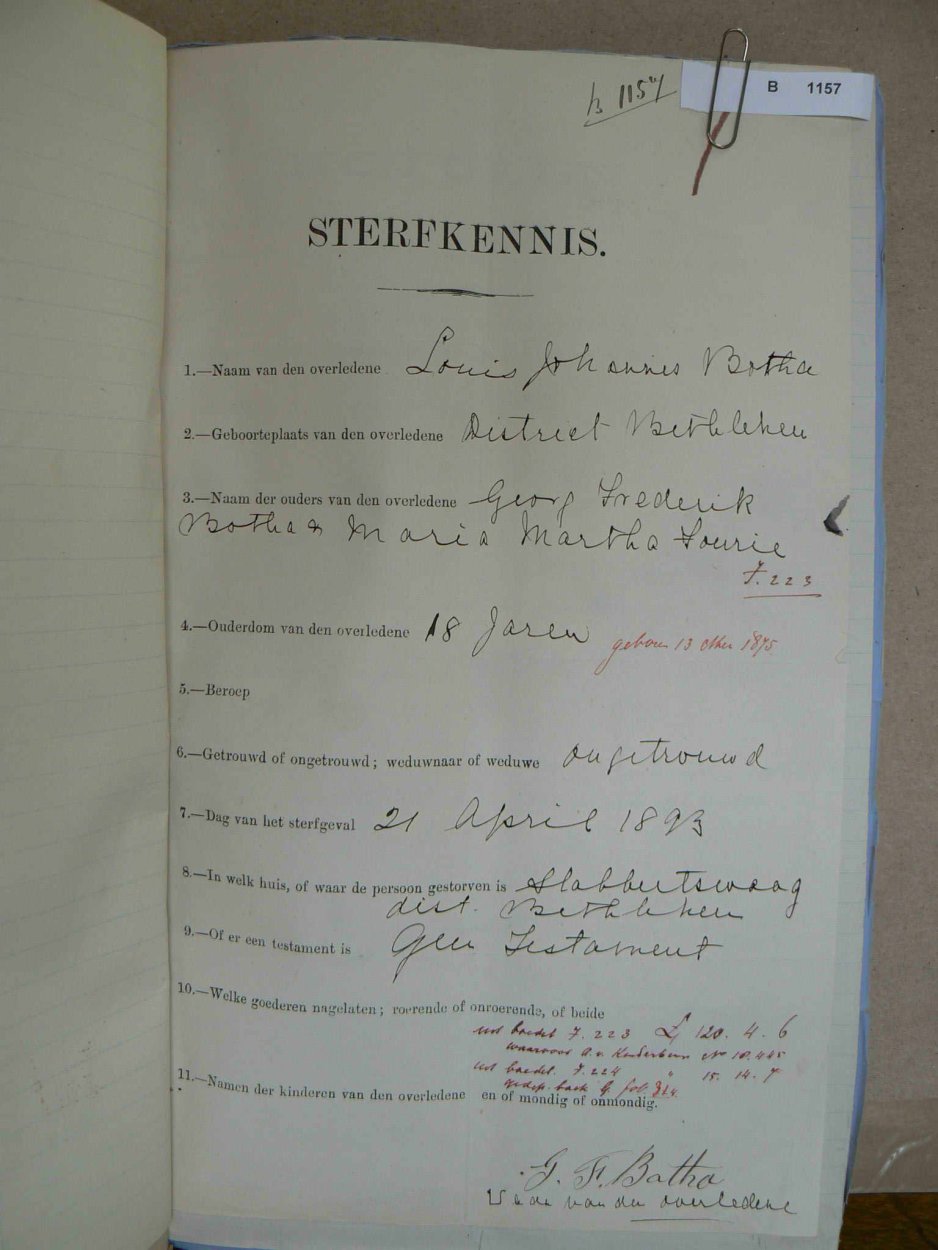 B 1157
B 1157
STERFKENNIS.
1.—Naam van den overledene Louis Johannes Botha
2.—Geboorteplaats van den overledene District Bethlehem
3.—Naam der ouders van den overledene Georg Frederik
Botha & Maria Martha Lourie
F. 223
4.—Ouderdom van den overledene 18 Jaren geboren 13 1875
5.—Beroep
6.—Getrouwd of ongetrouwd; weduwnaar of weduwe ongetrouwd
7.—Dag van het sterfgeval 21 April 1893
8.—In welk huis, of waar de persoon gestorven is Slabbertswaag
dist. Bethlehem
9.—Of er een testament is Geen Testament
10.—Welke goederen nagelaten; roerende of onroerende, of beide
uit boedel F. 223 £ 120. 4. 6
waarvoor No 10.445
uit boedel F. 224 " 15. 14. 7
fol.
11.—Namen der kinderen van den overledene en of mondig of onmondig.
G. F. Botha
Vader van den overledene